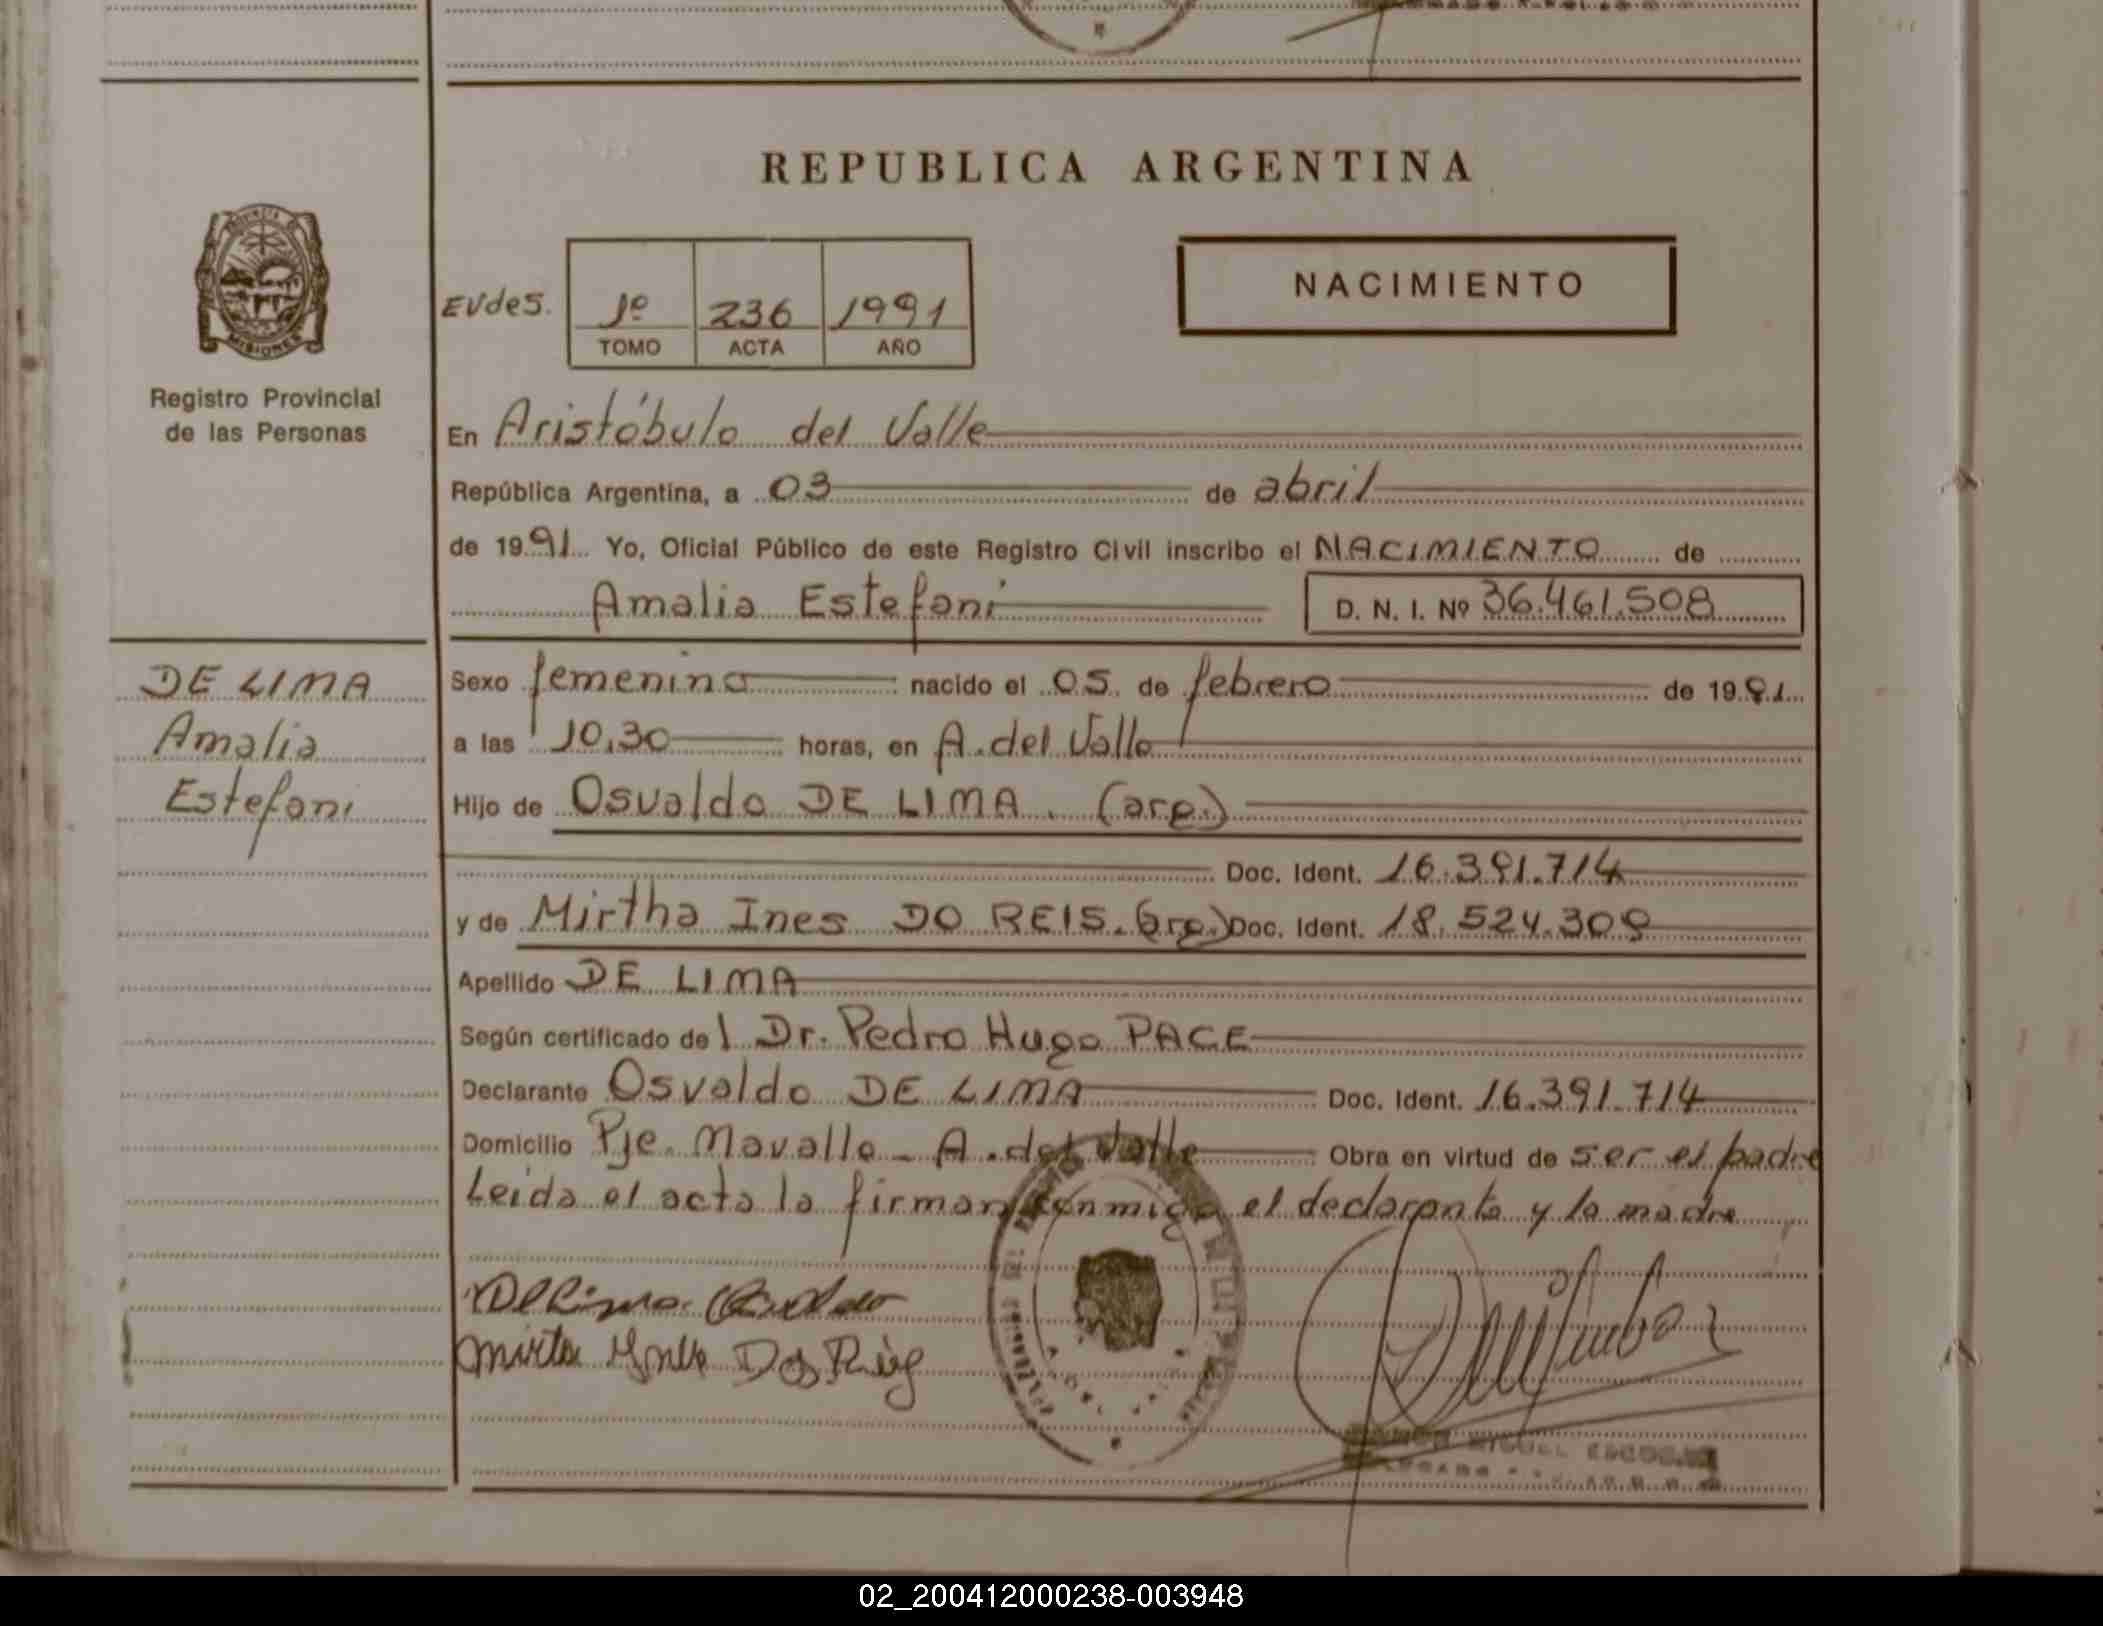 REPUBLICA ARGENTINA
MISIONES
Registro Provincial
de las Personas
EVdes.
1º 236 1991
TOMO ACTA AÑO
NACIMIENTO
En Aristóbulo del Valle
República Argentina, a 03 de abril
de 1991 Yo, Oficial Público de este Registro Civil inscribo el NACIMIENTO de
Amalia Estefani D. N. I. Nº 36.461.508
DE LIMA
Amalia
Estefani
Sexo femenino nacido el 05 de febrero de 1991
a las 10,30 horas, en A. del Valle
Hijo de Osvaldo DE LIMA. (arg.)
Doc. Ident. 16.391.714
y de Mirtha Ines DO REIS. (arg.) Doc. Ident. 18.524.309
Apellido DE LIMA
Según certificado del Dr. Pedro Hugo PACE
Declarante Osvaldo DE LIMA Doc. Ident. 16.391.714
Domicilio Pje. Mavalle - A. del Valle Obra en virtud de ser el padre
Leida el acta la firman conmigo el declarante y la madre
MIGUEL
02_200412000238-003948